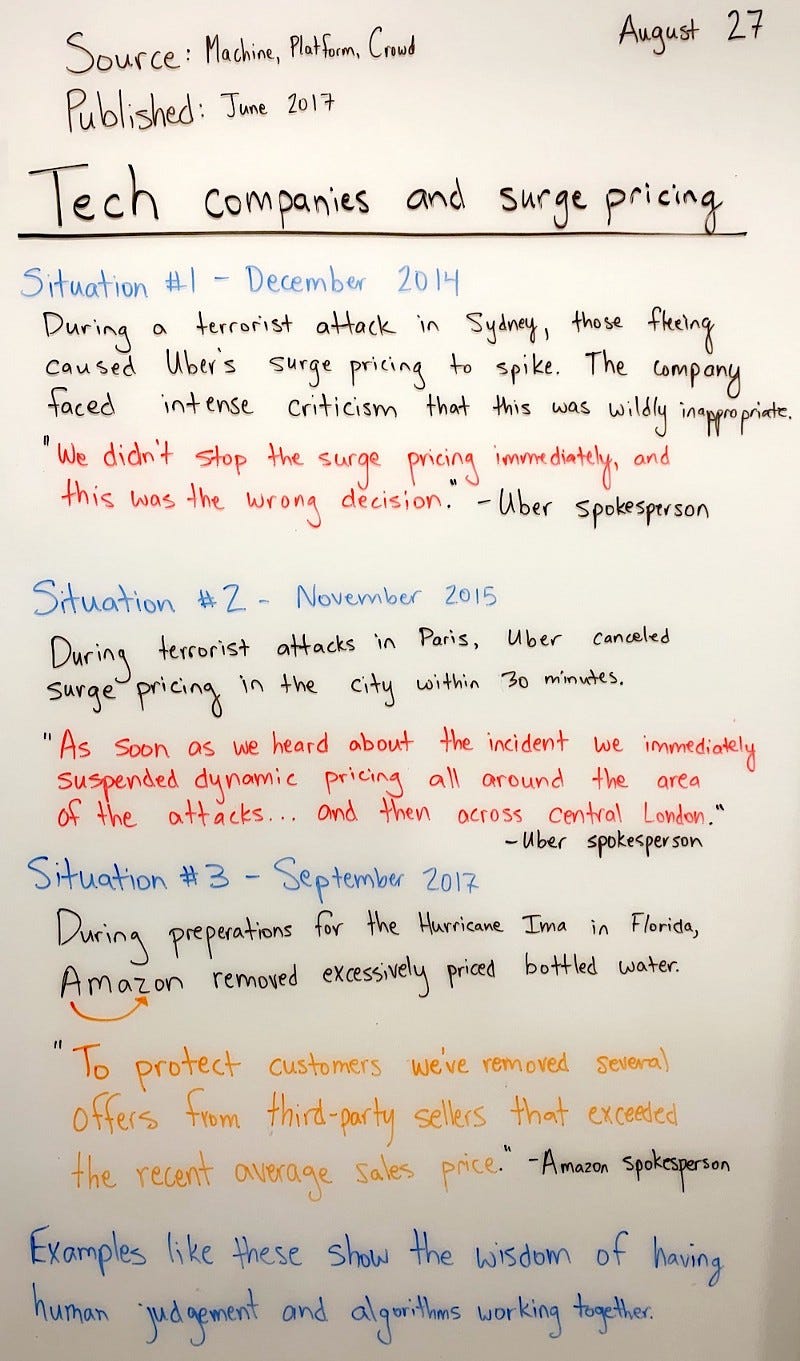 Source: Machine, Platform, Crowd
August 27
Published: June 2017
Tech companies and surge pricing
Situation #1 - December 2014
During a terrorist attack in Sydney, those fleeing
caused Uber's surge pricing to spike. The company
faced intense criticism that this was wildly inappropriate.
"We didn't stop the surge pricing immediately, and
this was the wrong decision." - Uber spokesperson
Situation #2 - November 2015
During terrorist attacks in Paris, Uber canceled
surge pricing in the city within 30 minutes.
"As soon as we heard about the incident we immediately
suspended dynamic pricing all around the area
of the attacks... and then across central London."
- Uber spokesperson
Situation #3 - September 2017
During preperations for the Hurricane Ima in Florida,
Amazon removed excessively priced bottled water.
"To protect customers we've removed several
offers from third-party sellers that exceeded
the recent average sales price." - Amazon spokesperson
Examples like these show the wisdom of having
human judgement and algorithms working together.